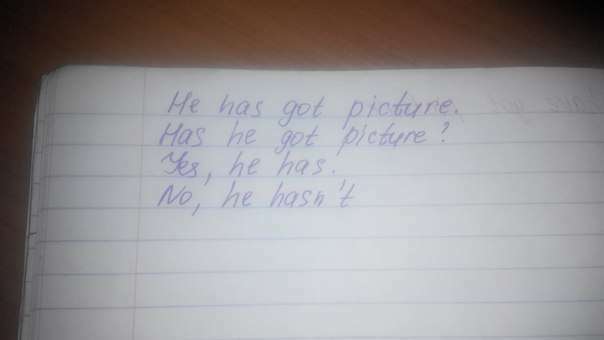 He has got picture.
Has he got picture?
Yes, he has.
No, he hasn't